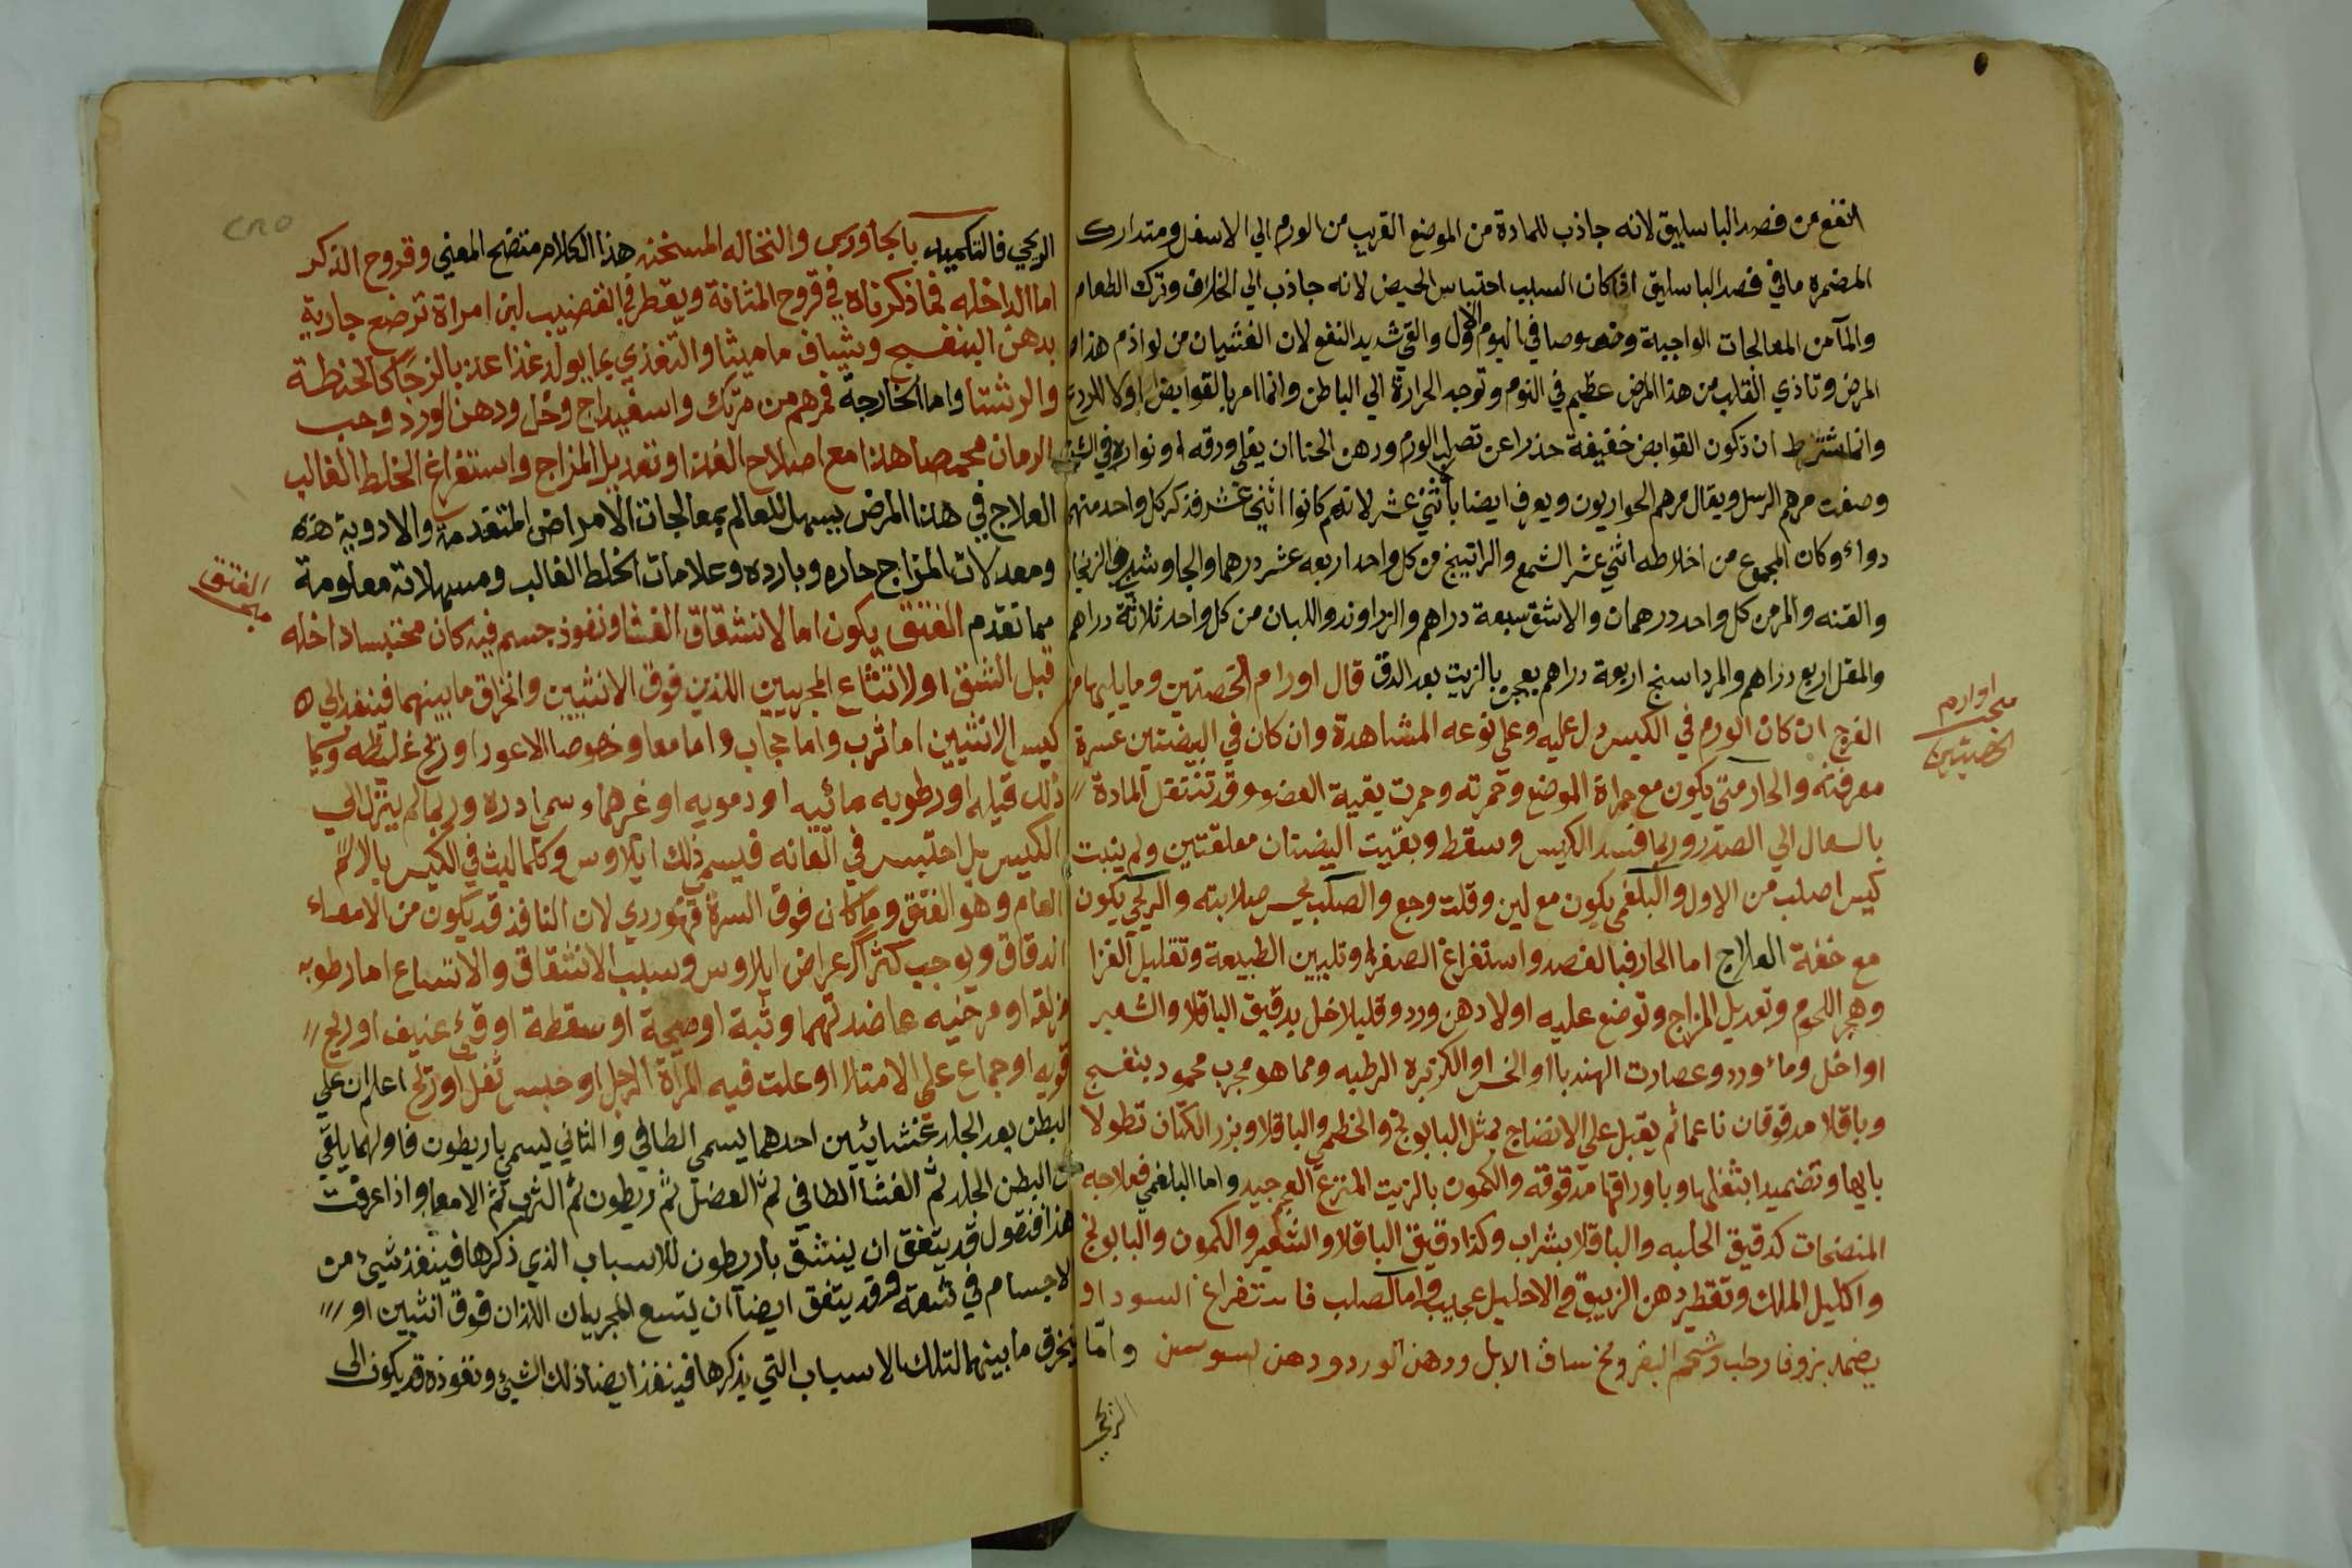 انفع من فصد الباسليق لانه جاذب للمادة من الموضع القريب من الورم الي الاسفل ومتدارك
المضره مافي فصد الباسليق اذا كان السبب احتباس الحيض لانه جاذب الي الخلاف وترك الطعام
والمآ من المعالجات الواجبة وخصوصا في اليوم الاول والقي شديد النفع لان الغثيان من لوازم هذا
المرض وتاذي القلب من هذا المرض عظيم في النوم وتوجد الحرارة الي الباطن وانما امر بالقوابض اولا للردع
وانما شترط ان تكون القوابض خفيفة حذرا عن تصلب الورم ودهن الحنا ان يغلي ورقه او نواره في
وصفت مرهم الرسل ويقال مرهم الحواريون ويعرف ايضا بأثني عشر لانهم كانوا اثني عشر فذكر كل واحد منهم
دواء وكان المجموع من اخلاطه اثني عشر الشمع والراتينج من كل واحد اربعه عشر درهما والجاوشير والزنجار
والقنه والمر من كل واحد درهمان والاشق سبعة دراهم والزراوند واللبان من كل واحد ثلاثة دراهم
والمقل اربع دراهم والمرداسنج اربعة دراهم يعجن بالزيت بعد الدق قال اورام الخصيتين وما يليهما من
اوارم
الخصيتين
الفرج ان كان الورم في الكيس دل عليه وعلي نوعه المشاهدة وان كان في البيضتين عسرة
معرفته والحار متي يكون مع حرارة الموضع وحمرته وحمرت بقية العضو وقد تنتقل المادة
بالسعال الي الصدر وربما فسد الكيس وسقط وبقيت البيضتان معلقتين ولم ينبت
كيس اصلب من الاول والبلغمي يكون مع لين وقلت وجع والصلب يحس صلابته والريحي يكون
مع خفة العلاج اما الحار فبالفصد واستفراغ الصفرا وتليين الطبيعة وتقليل الغزا
وهجر اللحوم وتعديل المزاج وتوضع عليه اولا دهن ورد وقليلا خل بدقيق الباقلا والشعير
او اخل وماء ورد وعصارت الهندبا او الخس او الكزبره الرطبه ومما هو مجرب محمود بنفسج
وباقلا مدقوقان ناعما ثم يقبل علي الانضاج بمثل البابونج والخطمي والباقلا وبزر الكتان نطولا
بايها وتضميدا بثفلها وباوراقها مدقوقه والكمون بالزيت المنزع العجم جيد واما البلغمي فعلاجه
المنضجات كدقيق الحلبه والباقلا بشراب وكذا دقيق الباقلا والشعير والكمون والبابونج
واكليل الملك وتقطير دهن الزيبق في الاحليل عجيب واما الصلب فاستفراغ السودا و
يضمد بزوفا رطب وشحم البقر ومخ ساق الابل ودهن الورد ودهن السوسن واما
الريحي
الريحي فالتكميد بالجاورس والنخاله المسخنه هذا الكلام متضح المعني وقروح الذكر
اما الداخله فما ذكرناه في قروح المثانة ويقطر في القضيب لبن امراة ترضع جارية
بدهن البنفسج وشياف ماميثا والتغذي بما يولد غذا عذبا لزجا كالحنطة
والرشتا واما الخارجة فمرهم من مرتك واسفيداج وخل ودهن الورد وحب
الرمان محمصا هذا مع اصلاح الغذا وتعديل المزاج واستفراغ الخلط الغالب
العلاج في هذا المرض يسهل للعالم بمعالجات الامراض المتقدمة والادوية هذه
ومعدلات المزاج حاره وبارده وعلامات الخلط الغالب ومسهلاته معلومة
الفتق
مما تقدم الفتق يكون اما لانشقاق الغشا ونفوذ جسم فيه كان محتبسا داخله
قبل الشق او لاتساع المجريين اللذين فوق الانثيين وانخراق ما بينهما فينفد الي
كيس الانثيين اما ثرب واما حجاب واما معا وخصوصا الاعور او ريح غليظه ويسما
ذلك قيله او رطوبه مائيه او دمويه او غرهما وسمي ادره وربما لم ينزل الي
الكيس بل احتبس في العانه فيسمي ذلك ايلاوس وكلما ليث في الكيس بالا
العام وهو الفتق وما كان فوق السرة فهوردي لان النافذ قد يكون من الامعاء
الدقاق ويوجب كثر اعراض ايلاوس وسبب الانشقاق والاتساع اما رطوبه
مزلقه او مرخيه عاضدتهما وثبة او صيحة او سقطة او قيء عنيف او ريح
قويه او جماع علي الامتلا او علت فيه المرأة الرجل او حبس ثفل او ريح اعلم ان علي
البطن بعد الجلد غشائيين احدهما يسمي الطافي والثاني يسمي باريطون فاولهما يلقي
من البطن الجلد ثم الغشا الطافي ثم العضل ثم ريطون ثم الثرب ثم الامعا واذا عرفت
هذا فنقول قد يتفق ان ينشق باريطون للاسباب الذي ذكرها فينفذ شيء من
الاجسام في شعبه وقد يتفق ايضا ان يتسع المجريان اللذان فوق انثيين او
ينخرق ما بينهما لتلك الاسباب التي يذكرها فينفذ ايضا ذلك الشيء ونفوذه قد يكون الى